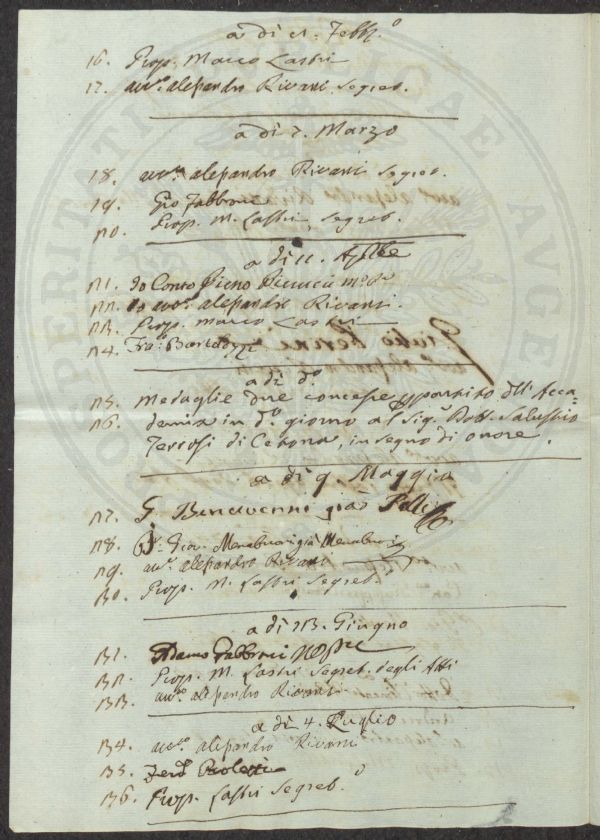 a dì 21. Febb.º
16. Prop. Marco Lastri
17. avv.º alessandro Rivani Segret.
a dì 7. Marzo
18. avv.º alessandro Rivani Segret.
19. Gio Fabbroni
20. Prop. M. Lastri, Segret.
a dì 11. Aprile
21. Io Conte
22. Io avv.º alessandro Rivani.
23. Prop. Marco Lastri
24. Fra.º Bartolozzi
a dì d.º
25. Medaglie due concesse p partito dell' Acca-
26. demia in d.º giorno al Sig.r Dott. Salustio
Terrosi di Cetona, in segno di onore.
a dì 9. Maggio
27. G. Bencivenni già Pelli
28. Gio. Menabuoni già Menabuoi
29. avv.º alessandro Rivani
30. Prop. M. Lastri Segret.
a dì 13. Giugno
31. Adamo Fabbroni
32. Prop. M. Lastri Segret. degli Atti
33. avv.º alessandro Rivani.
a dì 4. Luglio
34. avv.º alessandro Rivani
35. Ferd. Paoletti
36. Prop. Lastri Segret.